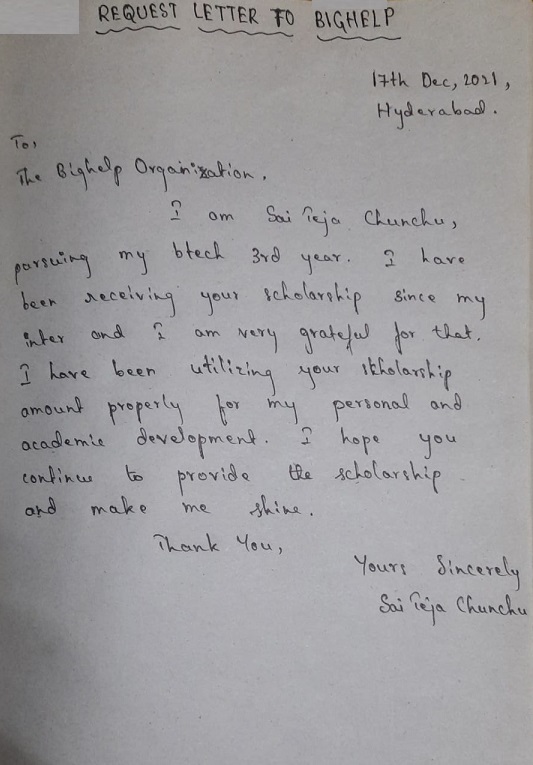 REQUEST LETTER TO BIGHELP
17th Dec, 2021,
Hyderabad.
To,
The Bighelp Organization.
I am Sai Teja Chunchu,
pursuing my btech 3rd year. I have
been receiving your scholarship since my
inter and I am very grateful for that.
I have been utilizing your skholarship
amount properly for my personal and
academic development. I hope you
continue to provide the scholarship
and make me shine.
Thank You,
Yours Sincerely
Sai Teja Chunchu